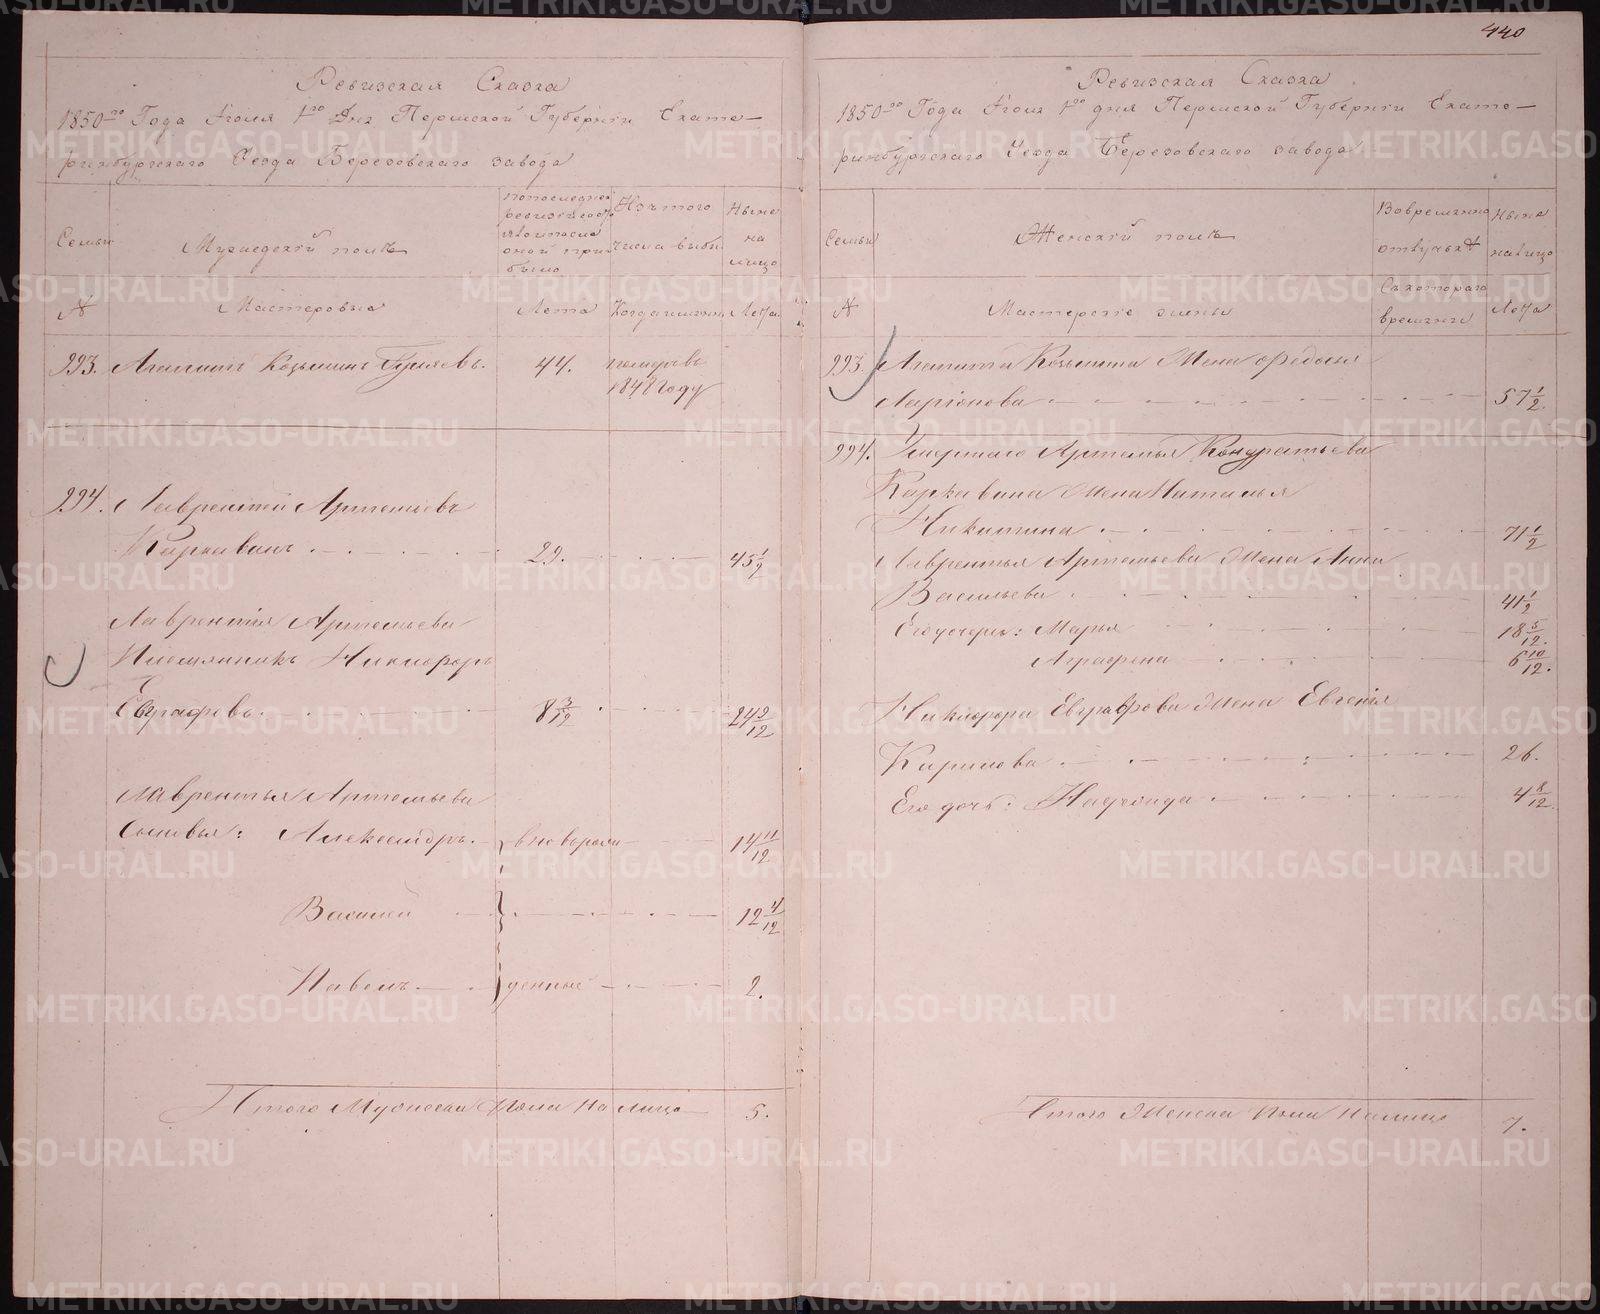 440
Ревизская Сказка
1850го Года Июля 1го Дня Пермской Губернии Екате–
ринбургскаго Уезда Березовскаго завода
Семьи
Мужеский полъ
попоследней ревизии
было
Изъ того числа выбы
Ныне на лицо
№
Мастеровые
Лета
Когда именно
Лета
993. Агапитъ Козьминъ Гуляевъ. 44. померъ въ
184 году
994. Лаврентий Артемьевъ
Каркавинъ 29. 45 1/2
Лаврентия Артемьева
Племянникъ Никифоръ
Евграфовъ 8 3/12 24 9/12
Лаврентья Артемьева
Сыновья: Александръ. вновьрож 14 11/12
Василий 12 4/12
Павелъ денные 2.
Итого Мужеска Пола На лицо 5.
Ревизская Сказка
1850го Года Июля 1го дня Пермской Губернии Екате–
ринбургскаго Уезда Березовскаго завода
Семьи
Женский полъ
Вовременно
отлучкѣ
Ныне налицо
№
Мастерские жены
Съ котораго
времяни
Лета
993. Агапита Козьмина Жена Федосья
Ларионова 57 1/2.
994. Умершаго Артемья Кондратьева
Каркавина Жена Наталья
Никитина 71 1/2
Лаврентья Артемьева Жена Анна
Васильева 41 1/2
Его дочери: Марья 18 5/12.
Аграфена 6 10/12.
Никифора Евграфова Жена Евгения
Карпова 26.
Его дочь: Надежда 4 8/12
Итого Женска Пола Налицо 7.
METRIKI.GASO-URAL.RU